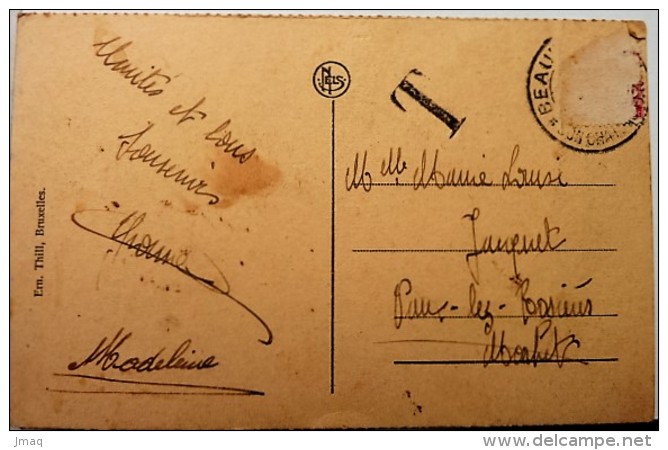 Amitiés et bons
Souvenirs
Madeleine
Ern. Thill, Bruxelles.
NELS
T
BEAU
Melle Marie Louise
Jacquet
Vaux-lez-Rosières
Morhet
jmaq
www.delcampe.net